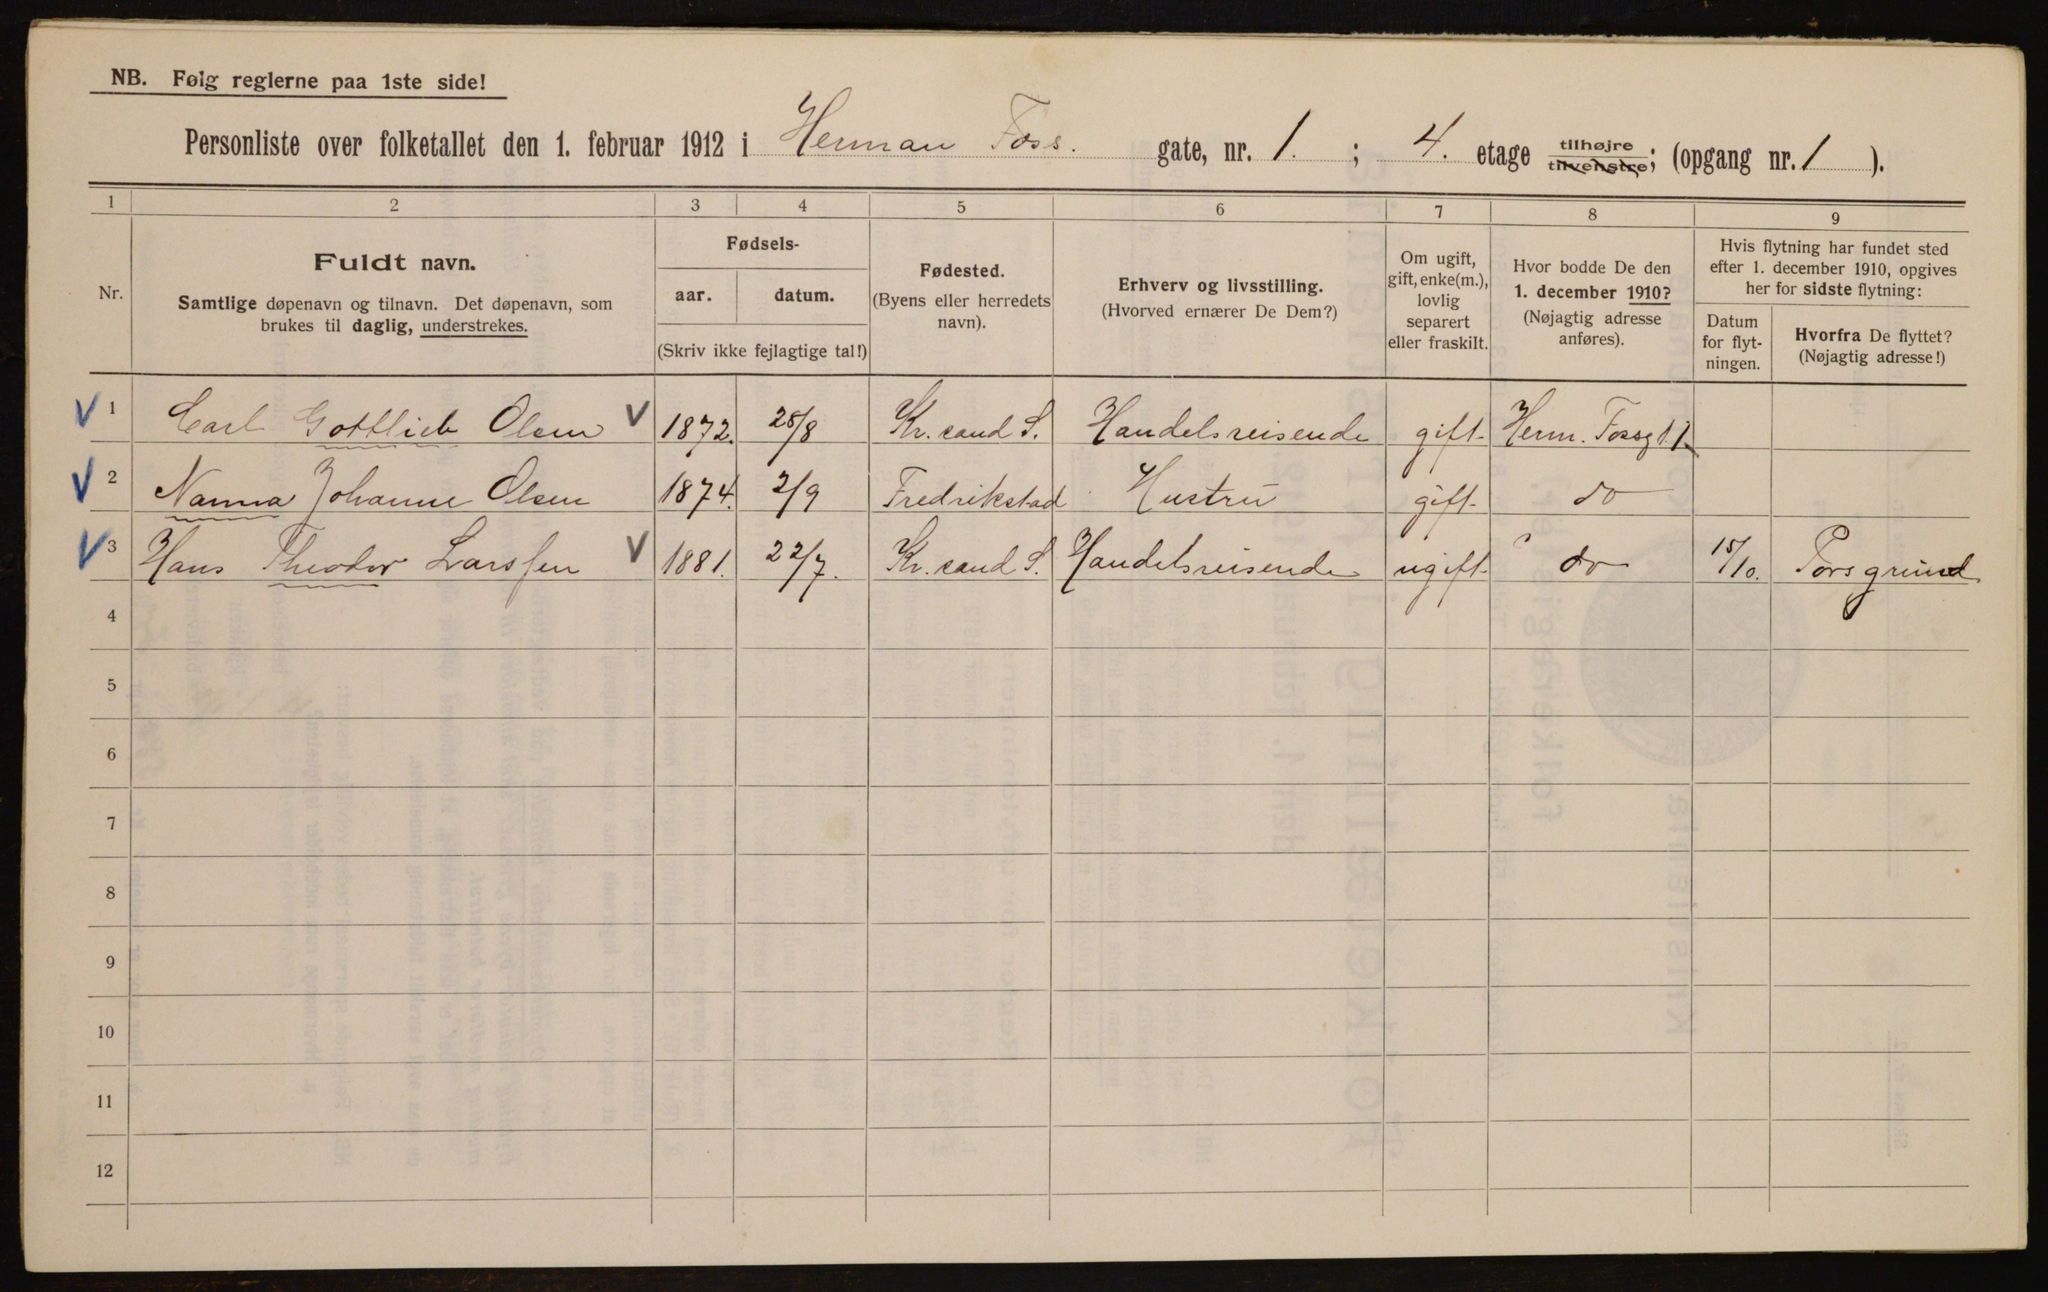 NB. Følg reglerne paa 1ste side!
Personliste over folketallet den 1. februar 1912 i Herman Foss. gate, nr. 1. ; 4. etage tilhøjre tilvenstre; (opgang nr. 1 ).
1 2 3 4 5 6 7 8 9
Nr.
Fuldt navn.
Samtlige døpenavn og tilnavn. Det døpenavn, som
brukes til daglig, understrekes.
Fødsels-
aar. datum.
(Skriv ikke fejlagtige tal!)
Fødested.
(Byens eller herredets
navn).
Erhverv og livsstilling.
(Hvorved ernærer De Dem?)
Om ugift,
gift, enke(m.),
lovlig
separert
eller fraskilt.
Hvor bodde De den
1. december 1910?
(Nøjagtig adresse
anføres).
Hvis flytning har fundet sted
efter 1. december 1910, opgives
her for sidste flytning:
Datum
for flyt-
ningen.
Hvorfra De flyttet?
(Nøjagtig adresse!)
1 Carl Gottlieb Olsen 1872. 28/8 Kr. sand S. Handelsreisende gift Herm. Fossgt. 1
2 Nanna Johanne Olsen 1874. 2/9 Fredrikstad Hustru gift do
3 Hans Theodor Larssen 1881. 22/7. Kr. sand S. Handelsreisende ugift ? do 15/10. Porsgrund
4
5
6
7
8
9
10
11
12